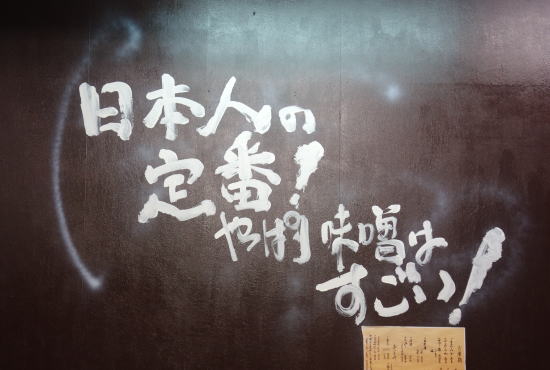 日本人の
定番!
やっぱり味噌は
すごい!